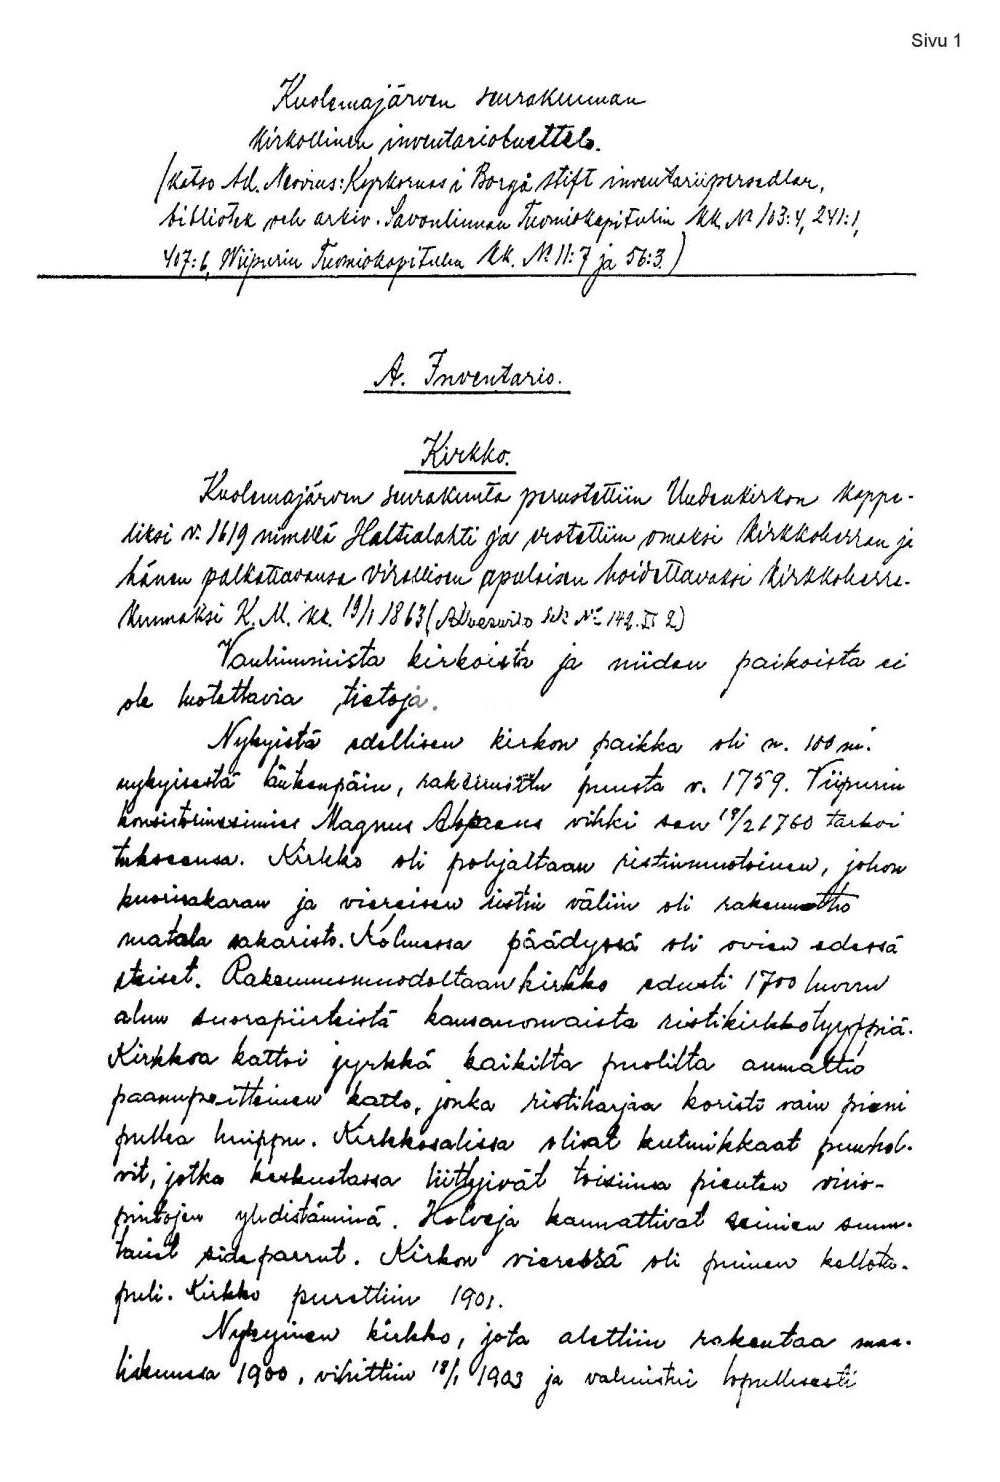 Sivu 1
Kuolemajärven seurakunnan
kirkollinen inventarioluettelo.
(katso Ad. Neovius: Kyrkornas i Borgå stift inventariipersedlar,
bibliotek och arkiv. Savonlinnan Tuomiokapitulin kk. № 103:4, 241:1,
407:6, Wiipurin Tuomiokapitulin kk. № 11:7 ja 56:3.)
A. Inventario.
Kirkko.
Kuolemajärven seurakunta perustettiin Uudenkirkon kappe-
liksi v. 1619 nimellä Haltialahti ja erotettiin omaksi kirkkoherran ja
hänen palkattavansa virallisen apulaisen hoidettavaksi kirkkoherra-
kunnaksi K. M. kk. 19/1 1863 (№ 142. II 2)
Vanhimmista kirkoista ja niiden paikoista ei
ole luotettavia tietoja.
Nykyistä edellisen kirkon paikka oli n. 100 m.
nykyisestä länteenpäin, rakennettu puusta v. 1759. Viipurin
konsistorinesimies Magnus Alopaeus vihki sen 18/2 1760 tarkoi
tukseensa. Kirkko oli pohjaltaan ristinmuotoinen, johon
kuorisakaran ja viereisen ristin väliin oli rakennettu
matala sakaristo. Kolmessa päädyssä oli ovien edessä
eteiset. Rakennusmuodoltaan kirkko edusti 1700 luvun
alun suorapiirteistä kansanomaista ristikirkkotyyppiä.
Kirkkoa kattoi jyrkkä kaikilta puolilta aumattu
paanupeitteinen katto, jonka ristiharjaa koristi vain pieni
pullea huippu. Kirkkosalissa olivat kulmikkaat puuhol-
vit, jotka keskustassa liittyivät toisiinsa pienten viisto-
pintojen yhdistäminä. Holveja kannattivat seinien suun-
taiset sideparrut. Kirkon vieressä oli puinen kellota-
puli. Kirkko purettiin 1901.
Nykyinen kirkko, jota alettiin rakentaa maa-
liskuussa 1900, vihittiin 18/1 1903 ja valmistui lopullisesti